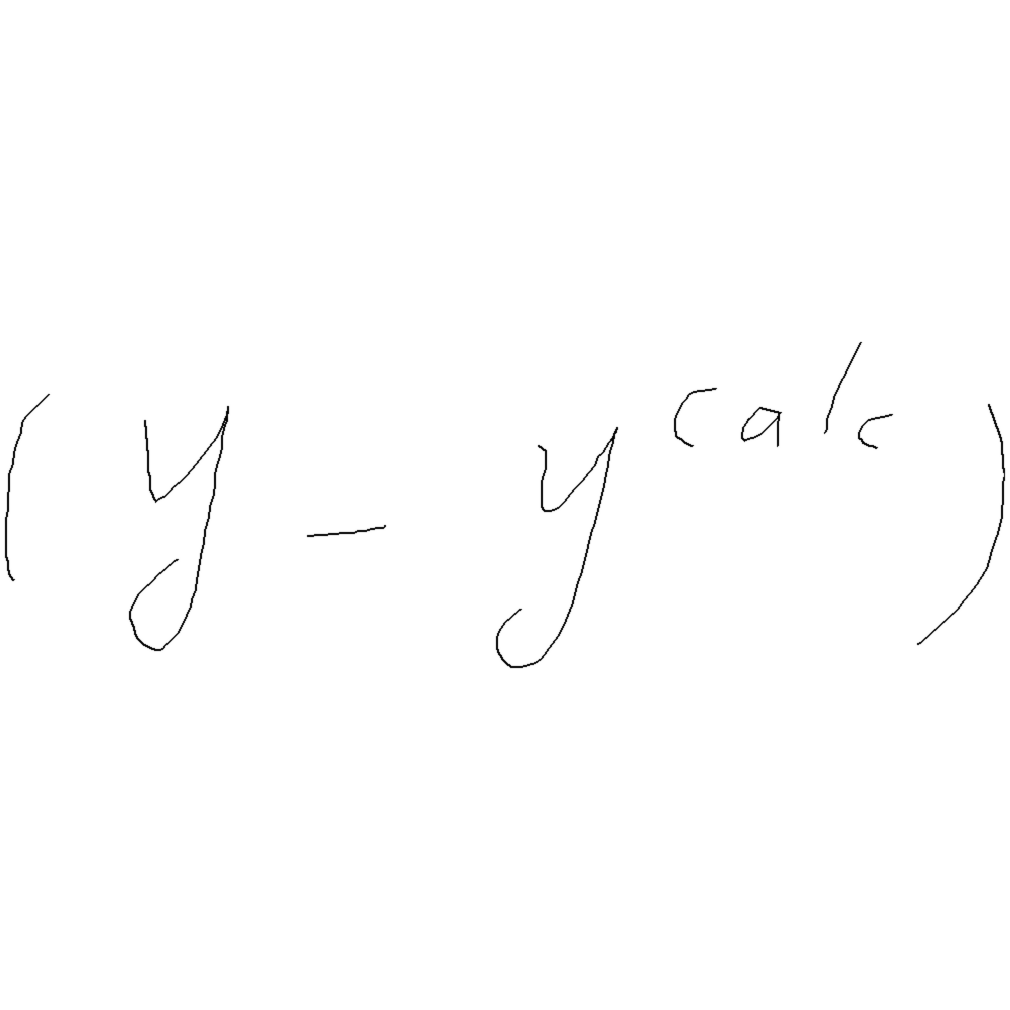 (y - y^{calc})